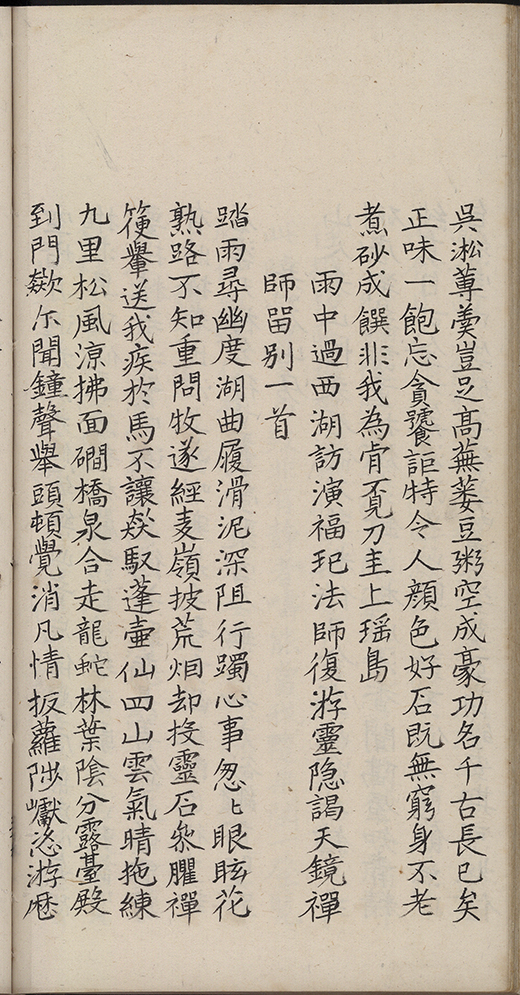 吳淞蓴羮豈足髙蕪蔞豆粥空成豪功名千古長已矣
正味一飽忘貪饕詎特令人顔色好石既無窮身不老
煮砂成饌非我為肯覔刀圭上瑶島
雨中過西湖訪演福玘法師復游靈隐謁天鏡禪
師畱别一首
踏雨尋幽度湖曲履滑泥深阻行躅心事怱〻眼眩花
熟路不知重問牧遂經麦嶺披荒烟却投靈石叅臞禪
箯轝送我疾於馬不讓𣣏馭蓬壷仙四山雲氣晴拖練
九里松風涼拂面磵橋泉合走龍蛇林葉陰分露䑓殿
到門欻尓聞鐘聲舉頭頓覺消凡情扳蘿陟巘恣游歷